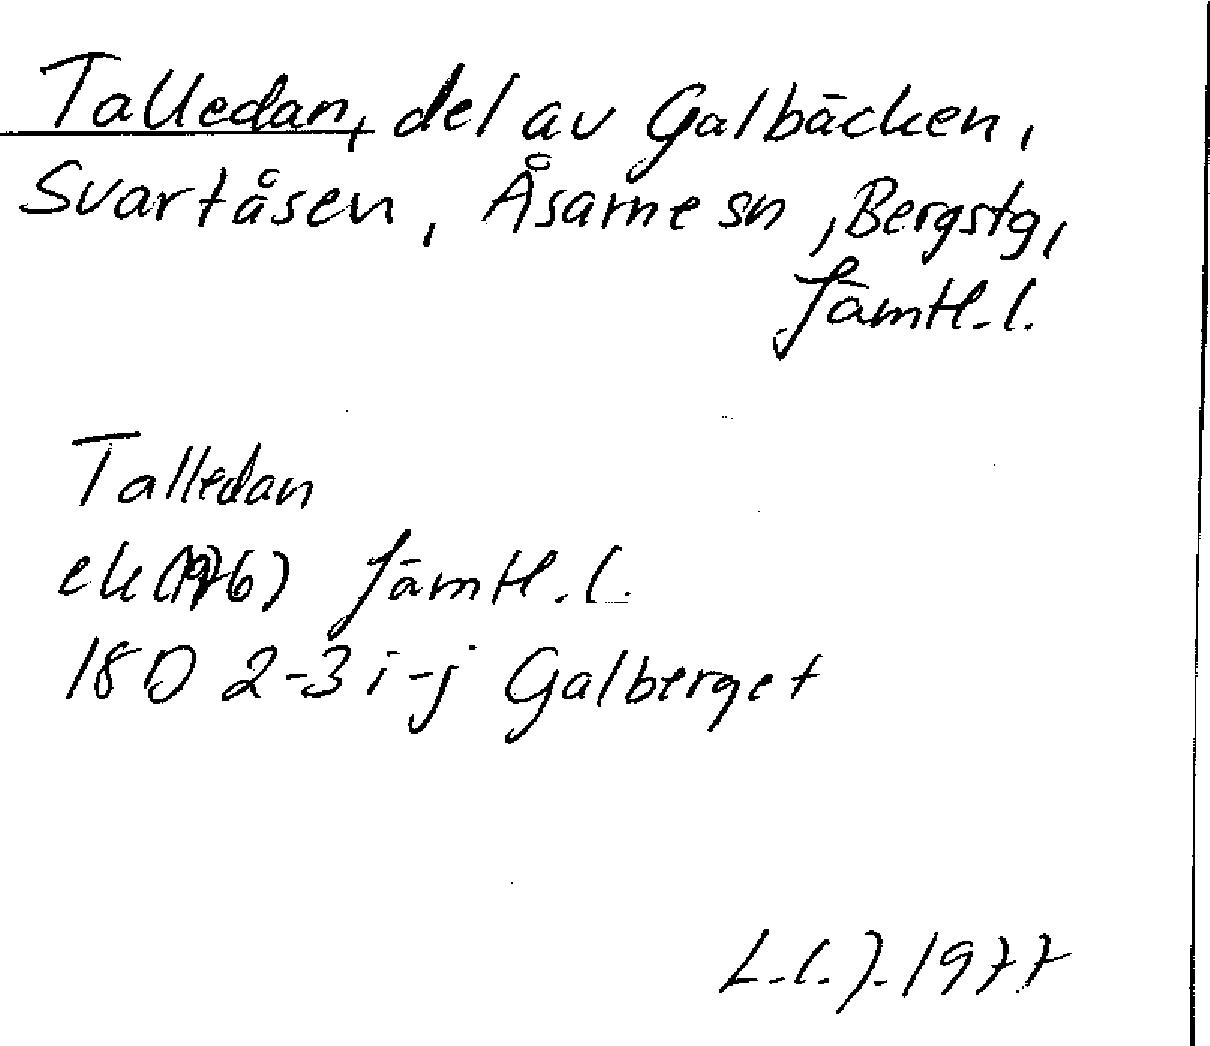 Talledan, del av Galbäcken,
Svartåsen, Åsarne sn, Bergstg,
Jämtl. l.
Talledan
ek (1976) Jämtl. l.
18D 2-3 i-j Galberget
L. l. J. 1977